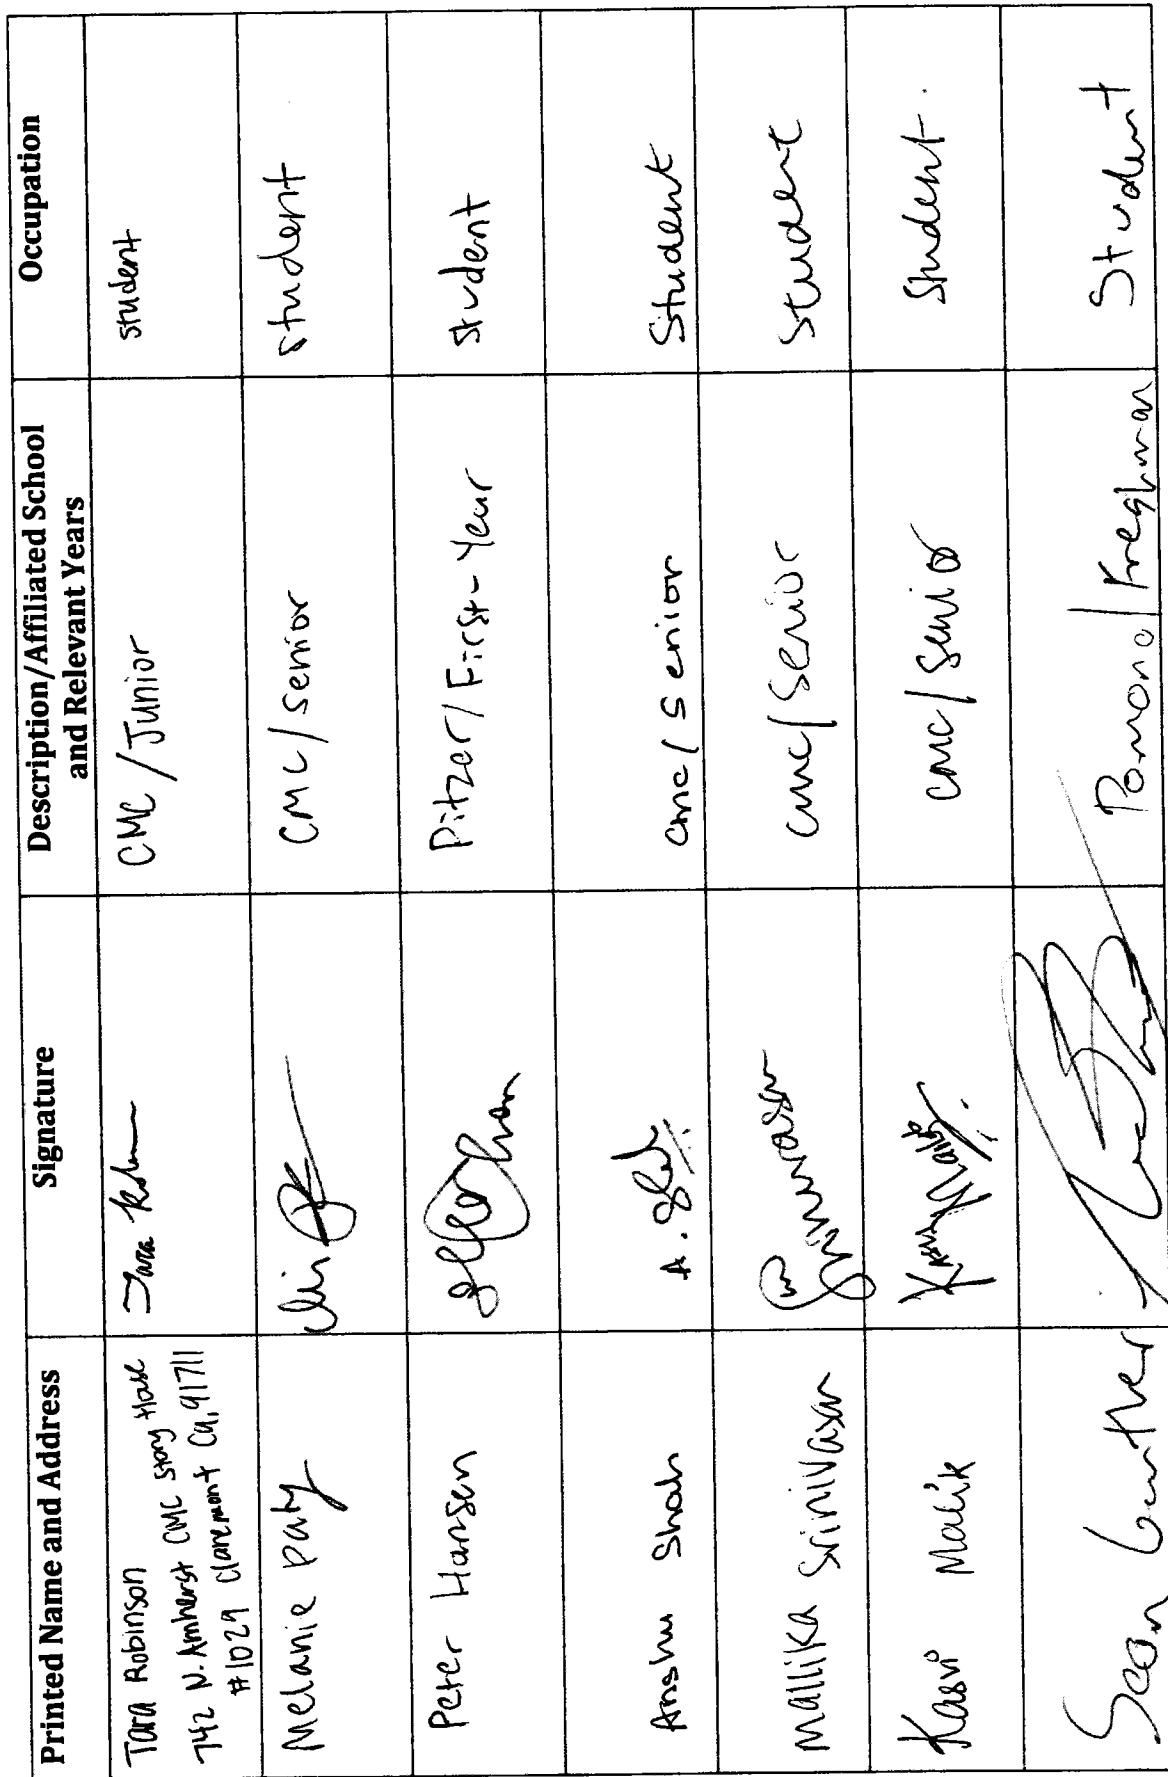 Printed Name and Address
Signature
Description/Affiliated School
and Relevant Years
Occupation
Tara Robinson
742 N. Amherst CMC Story House
#1029 Claremont Ca, 91711
CMC / Junior
student
Melanie Paty
CMC / senior
student
Peter Hansen
Pitzer / First-Year
student
Anshu Shah
A. Shah
cmc / senior
Student
Mallika Srinivasan
Srinivasan
cmc / Senior
Student
Kasvi Malik
Kasvi Malik
cmc / senior
Student.
Sean
Pomona / Freshman
Student